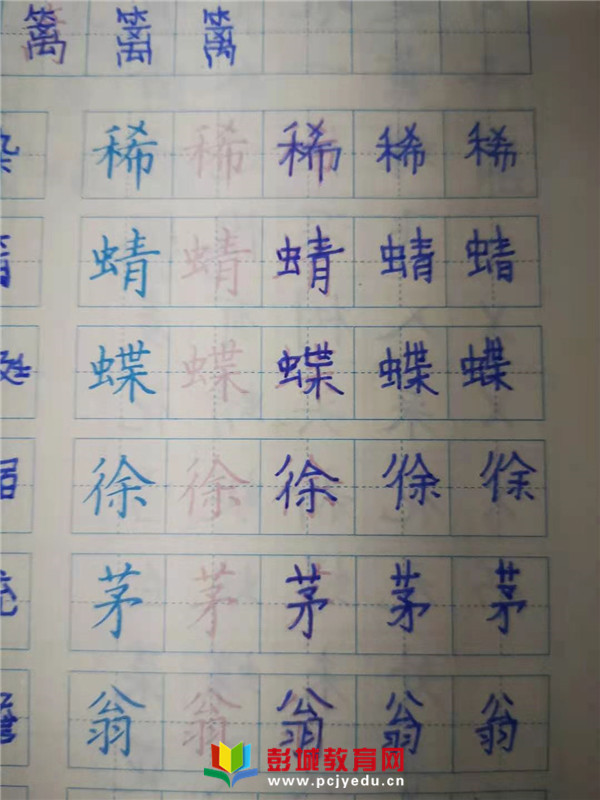 篱 篱 篱
稀 稀 稀 稀 稀
蜻 蜻 蜻 蜻 蜻
蝶 蝶 蝶 蝶 蝶
徐 徐 徐 徐 徐
茅 茅 茅 茅 茅
翁 翁 翁 翁 翁
彭城教育网
www.pcjyedu.cn